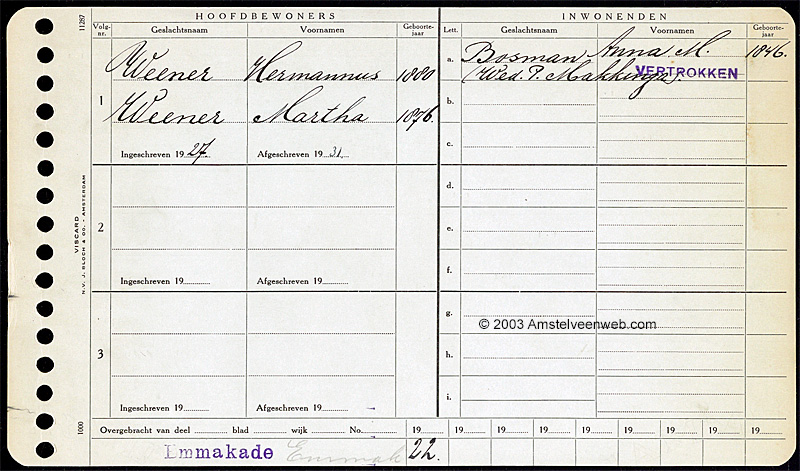 HOOFDBEWONERS
INWONENDEN
11287
Volg-
nr.
Geslachtsnaam
Voornamen
Geboorte-
jaar
Lett.
Geslachtsnaam
Voornamen
Geboorte-
jaar
1
Weener Hermannus 1880
Weener Martha 1876.
Ingeschreven 19 27. Afgeschreven 19 31.
a. Bosman Anna M. 1846.
(Wed. P. Makkinga).
VERTROKKEN
b.
c.
VISCARD
N.V. J. BLOCH & Co. - AMSTERDAM
2
Ingeschreven 19 Afgeschreven 19
d.
e.
f.
3
Ingeschreven 19 Afgeschreven 19
g.
© 2003 Amstelveenweb.com
h.
i.
1000
Overgebracht van deel blad wijk No. 19 19 19 19 19 19 19 19 19
Emmakade Emmak 22.